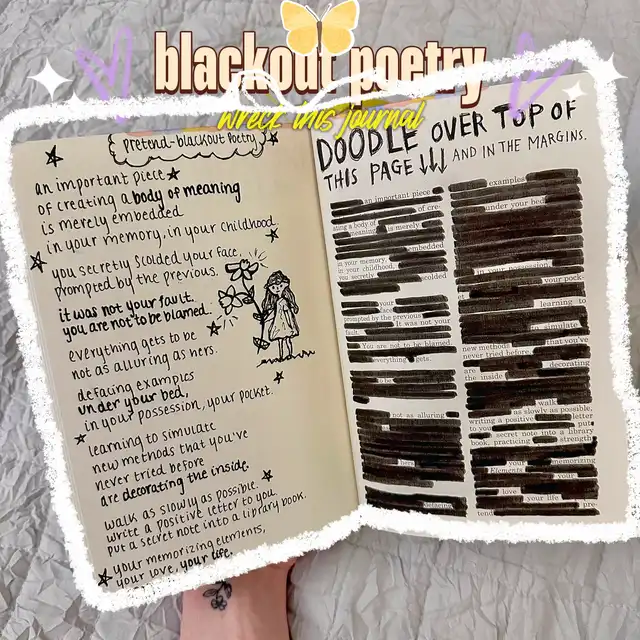 blackout poetry
wreck this journal
pretend-blackout Poetry
an important piece
of creating a body of meaning
is merely embedded
in your memory, in your childhood.
you secretly scolded your face,
prompted by the previous.
it was not your fault.
you are not to be blamed.
everything gets to be
not as alluring as hers.
defacing examples
under your bed,
in your possession, your pocket.
learning to simulate
new methods that you've
never tried before
are decorating the inside.
walk as slowly as possible.
write a positive letter to you.
put a secret note into a library book.
your memorizing elements,
your love, your life.
DOODLE OVER TOP OF
THIS PAGE ↓↓↓ AND IN THE MARGINS.
an important piece
of cre-
ating a body of
meaning is merely
embedded
in your memory,
in your childhood,
you secretly scolded
your
face
prompted by the previous
fault. It was not your
You are not to be blamed
everything gets.
to be
not as alluring
hers
examples
under your bed
in your possession
your pock-
et
learning to
simulate
that you've
new methods
never tried before
are decorating
the inside
walk
as slowly as possible,
writing a positive letter
to you put
secret note into a library
book, practicing strength
your memorizing
Elements
your
love your life